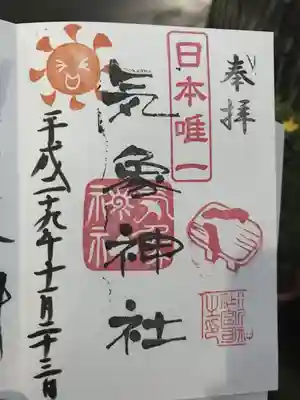 奉拝
日本唯一
気象神社
平成二十九年十二月二十三日